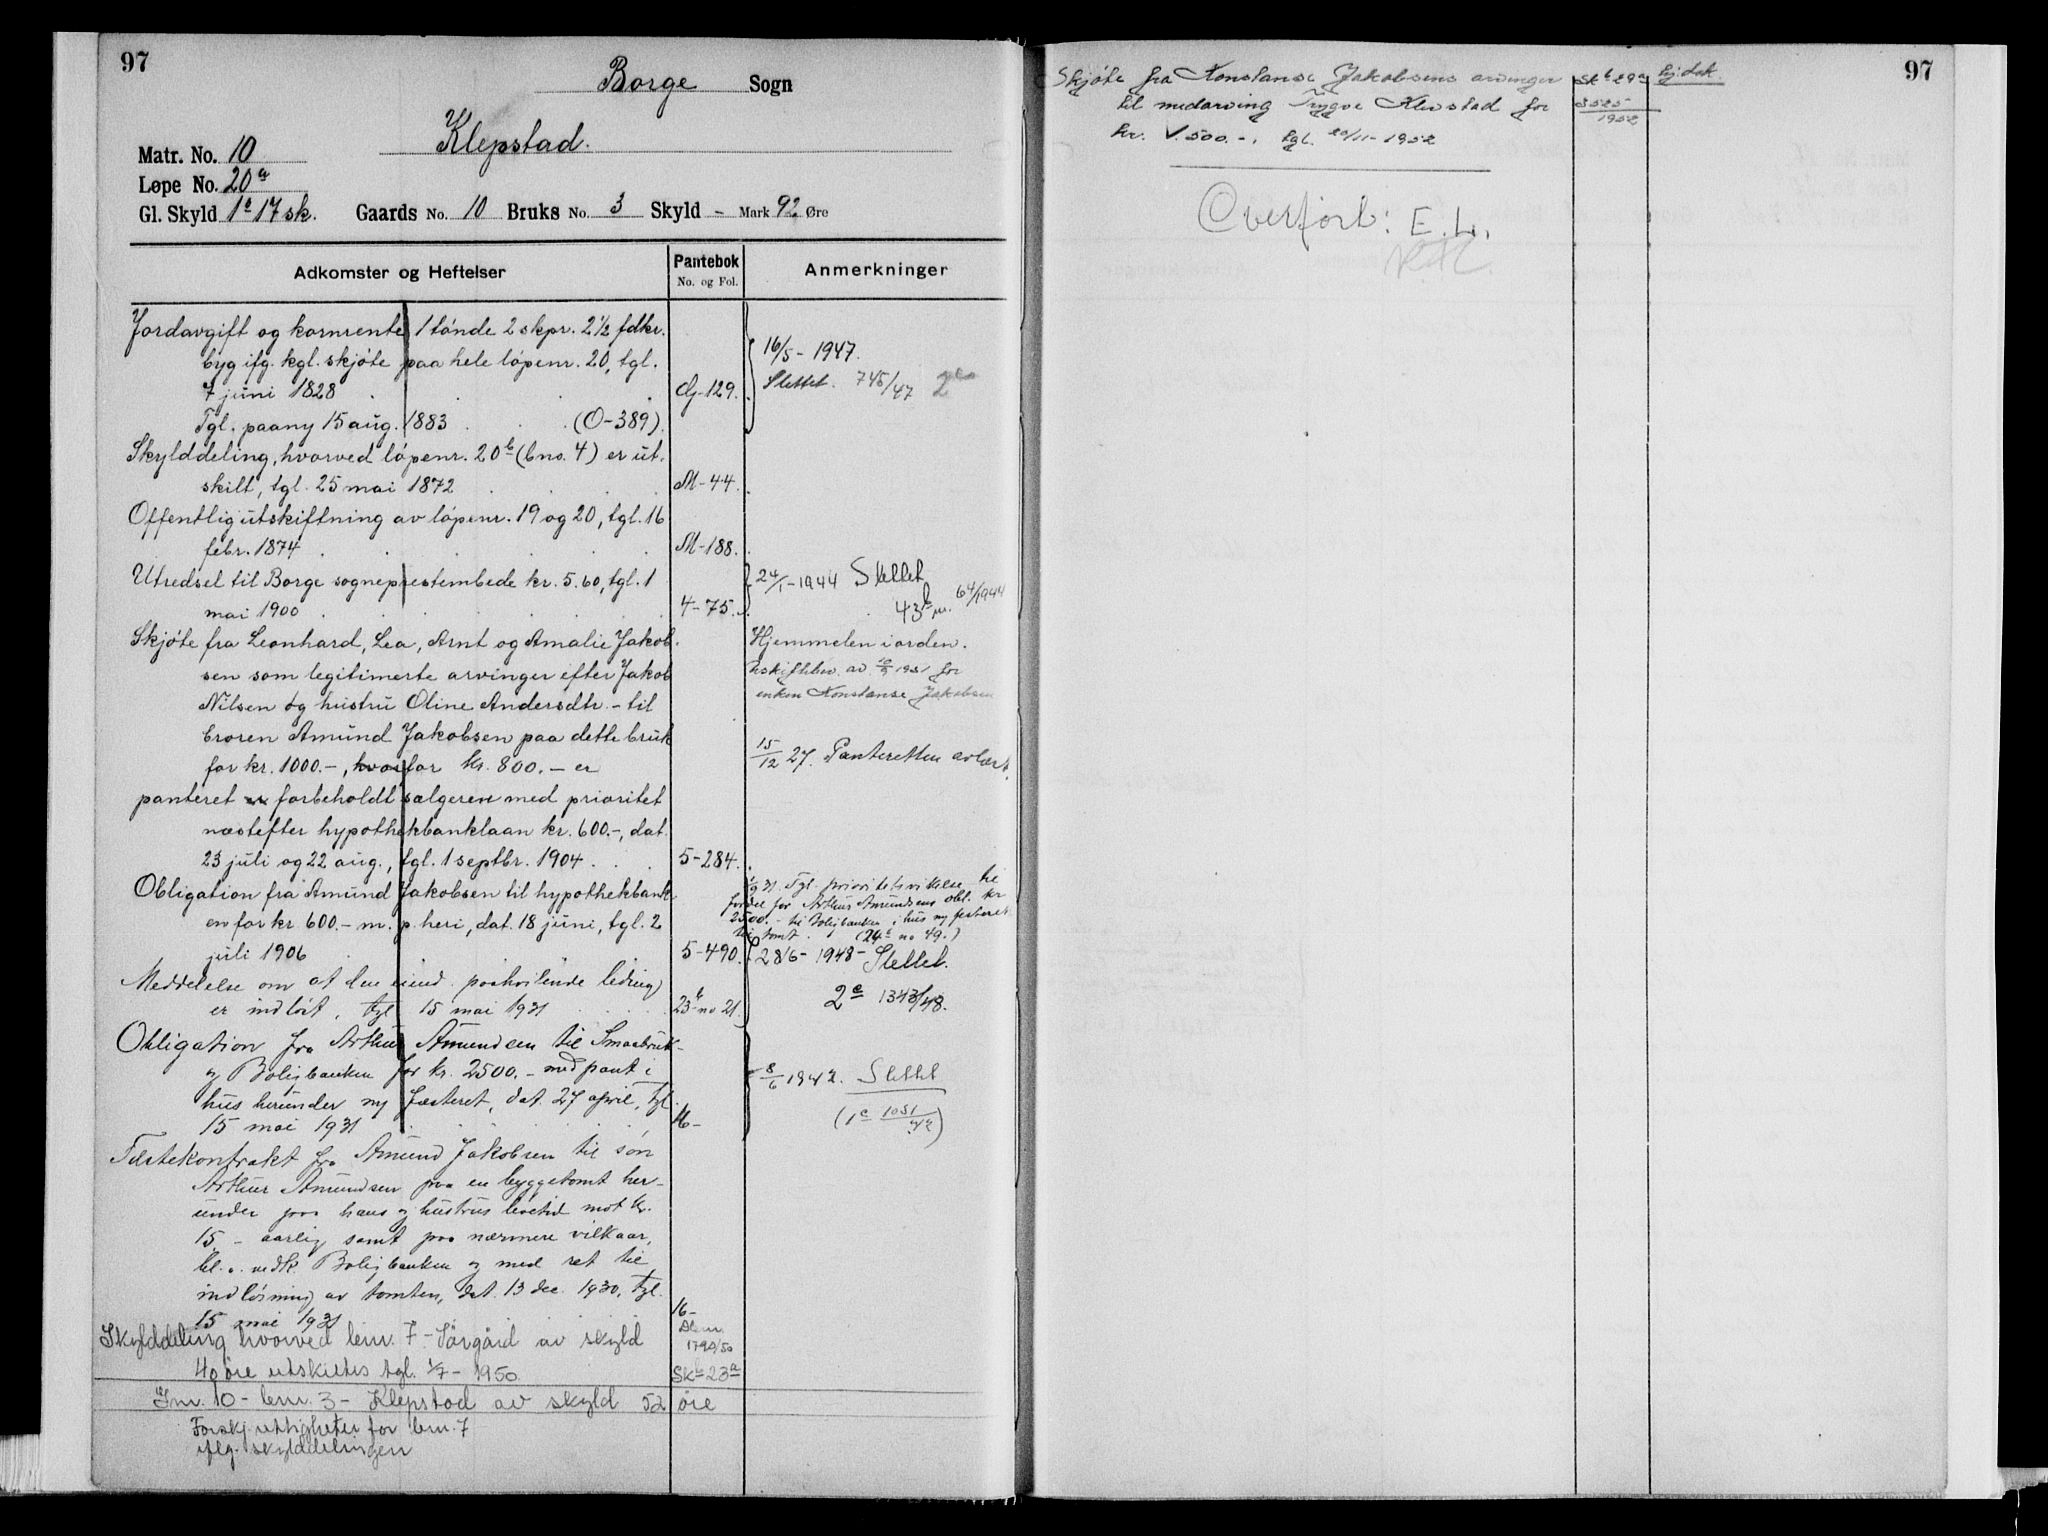 97
Borge Sogn
Klepstad.
Matr. No. 10
Løpe No. 20a
Gl. Skyld 17 sk. Gaards No. 10 Bruks No. 3 Skyld - Mark 92 Øre
Adkomster og Heftelser
Pantebok
No. og Fol.
Anmerkninger
Jordavgift og kornrente 1 tønde 2 skpr. 2 1/2 fdkr.
byg ifg. kgl. skjøte paa hele løpenr. 20, tgl.
7 juni 1828 G-129.
Tgl. paany 15 aug. 1883 (O-389).
16/5 - 1947.
Slettet. 745/47
Skylddeling, hvorved løpenr. 20b (bno. 4) er ut-
skilt, tgl. 25 mai 1872 M-44.
Offentlig utskiftning av løpenr. 19 og 20, tgl. 16
febr. 1874 M-188.
Utredsel til Borge sogneprestembede kr. 5.60, tgl. 1
mai 1900 4-75.
24/1-1944 Slettet
64/1944
Skjøte fra Leonhard, Lea, Arnt og Amalie Jakob-
sen som legitimerte arvinger efter Jakob
Nilsen og hustru Oline Andersdtr. - til
broren Amund Jakobsen paa dette bruk
for kr. 1000.-, hvorfor kr. 800.- er
panteret er forbeholdt sælgeren med prioritet
næstefter hypothekbanklaan kr. 600.-, dat.
23 juli og 22 aug., tgl. 1 septbr. 1904 5-284.
Hjemmelen i orden.
for
enken Konstanse Jakobsen
15/12 27. Panteretten avlæst.
Obligation fra Amund Jakobsen til hypothekbank-
en for kr. 600.- m. p. heri, dat. 18 juni, tgl. 2
juli 1906 5-490.
Tgl. prioritetsvikelse til
fordel for Arthur Amundsens obl. kr
2500.- til Boligbanken i hus ny festeret
til tomt. (24 no 49.)
28/6 - 1948 - Slettet.
2c 1343/48.
Meddelelse om at den paahvilende leding
er indløst, tgl 15 mai 1931 23b no 21.
Obligation fra Arthur Amundsen til Smaabruk-
og Boligbanken for kr. 2500.- med pant i
hus herunder ny fæsteret, dat. 27 april, tgl.
15 mai 1931 16-
8/6 1942. Slettet
(1c 1051/42)
Fæstekontrakt fra Amund Jakobsen til søn
Arthur Amundsen paa en byggetomt her-
under paa hans og hustrus levetid mot kr.
15 - aarlig samt paa nærmere vilkaar,
bl. a. vedk Boligbanken og med ret til
indløsning av tomten, dat. 13 dec. 1930, tgl.
15 mai 1931 16-
Skylddeling hvorved bnr. 7 - Sørgård av skyld
40 øre utskiltes tgl. 1/7 - 1950 1790/50
Skb 23a
Gnr. 10 - bnr. 3 - Klepstad av skyld 52 øre
Forskj. rettigheter for bnr. 7
iflg. skylddelingen
97
Skjøte fra Konstanse Jakobsens arvinger
til medarving Trygve Klepstad for
kr. 500.-, tgl. 20/11-1952
Skb 29a
1952
Overført: E.L.